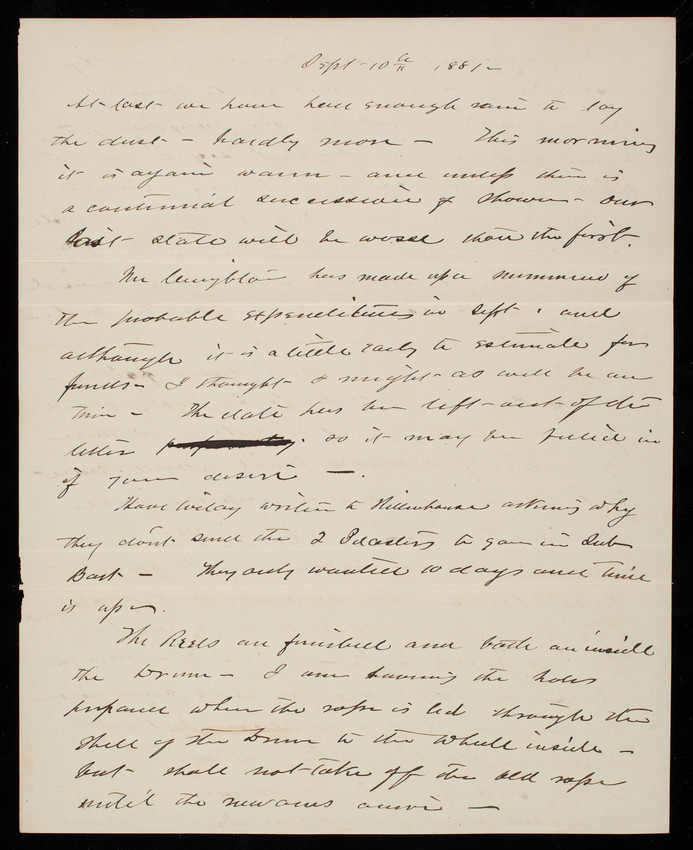 Sept 10th 1881 -
At last we have had enough rain to lay
the dust - hardly more - This morning
it is again warm - and unless there is
a continual succession of showers - our
last state will be worse than the first.
Mr has made up a of
the probable expenditures in Sept. and
although it is a little early to estimate for
funds - I thought I might as well be on
time - The date has been left out of the
letter so it may be filled in
if you desire -.
Have written to Hillenbrand asking why
they don't send the 2 to go in Sub
Bast - They only wanted 10 days and time
is up -.
The Reels are finished and both are inside
the Drum - I am having the holes
prepared where the rope is led through the
shell of the Drum to the wheel inside -
but shall not take off the old rope
until the new ones arrive -